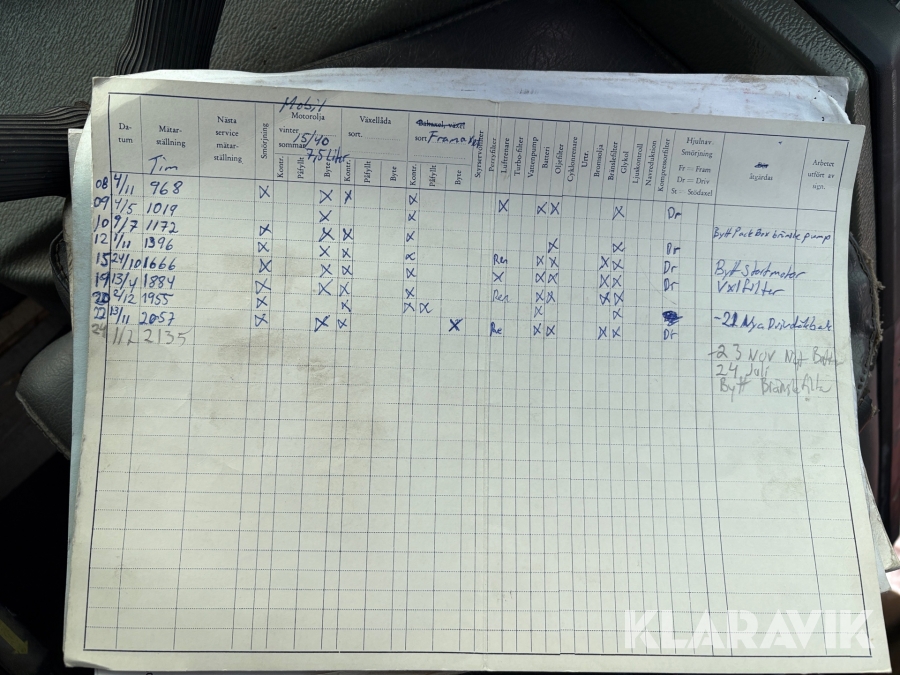 Mobil
Da-
tum
Mätar-
ställning
Tim
Nästa
service
mätar-
ställning
Smörjning
Motorolja
vinter
sommar
15/40
7,5 Liter
Kontr.
Påfyllt
Byte
Växellåda
sort.
Kontr.
Påfyllt
Byte
sort.
Kontr.
Påfyllt
Byte
Styrservofilter
Luftrenare
Turbo-filter
Vattenpump
Batteri
Oljefilter
Cyklonrenare
Urtr.
Bromsolja
Bränslefilter
Glykol
Ljuskontroll
Navreduktion
Kompressorfilter
Hjulnav-
Smörjning
Fr = Fram
Dr = Driv
St = Stödaxel
åtgärdas
Arbetet
utfört av
sign.
08 4/11 968 X X X X X X X X Dr
09 4/5 1019 X X
10 9/7 1172 X X X X Bytt Pack Box bränsle pump
12 1/11 1396 X X X X X X Dr
15 24/10 1666 X X X X Ren X X X X Dr Bytt Startmotor
19 13/4 1884 X X X X X X X X X Dr Vxl filter
20 2/12 1955 X X X X Ren X X X X
22 13/11 2057 X X X X X X -21 Nya
24 11/7 2135 Re X X X X Dr
-23 Nov Nytt
24 Juli
Bytt Bränslefilter
KLARAVIK